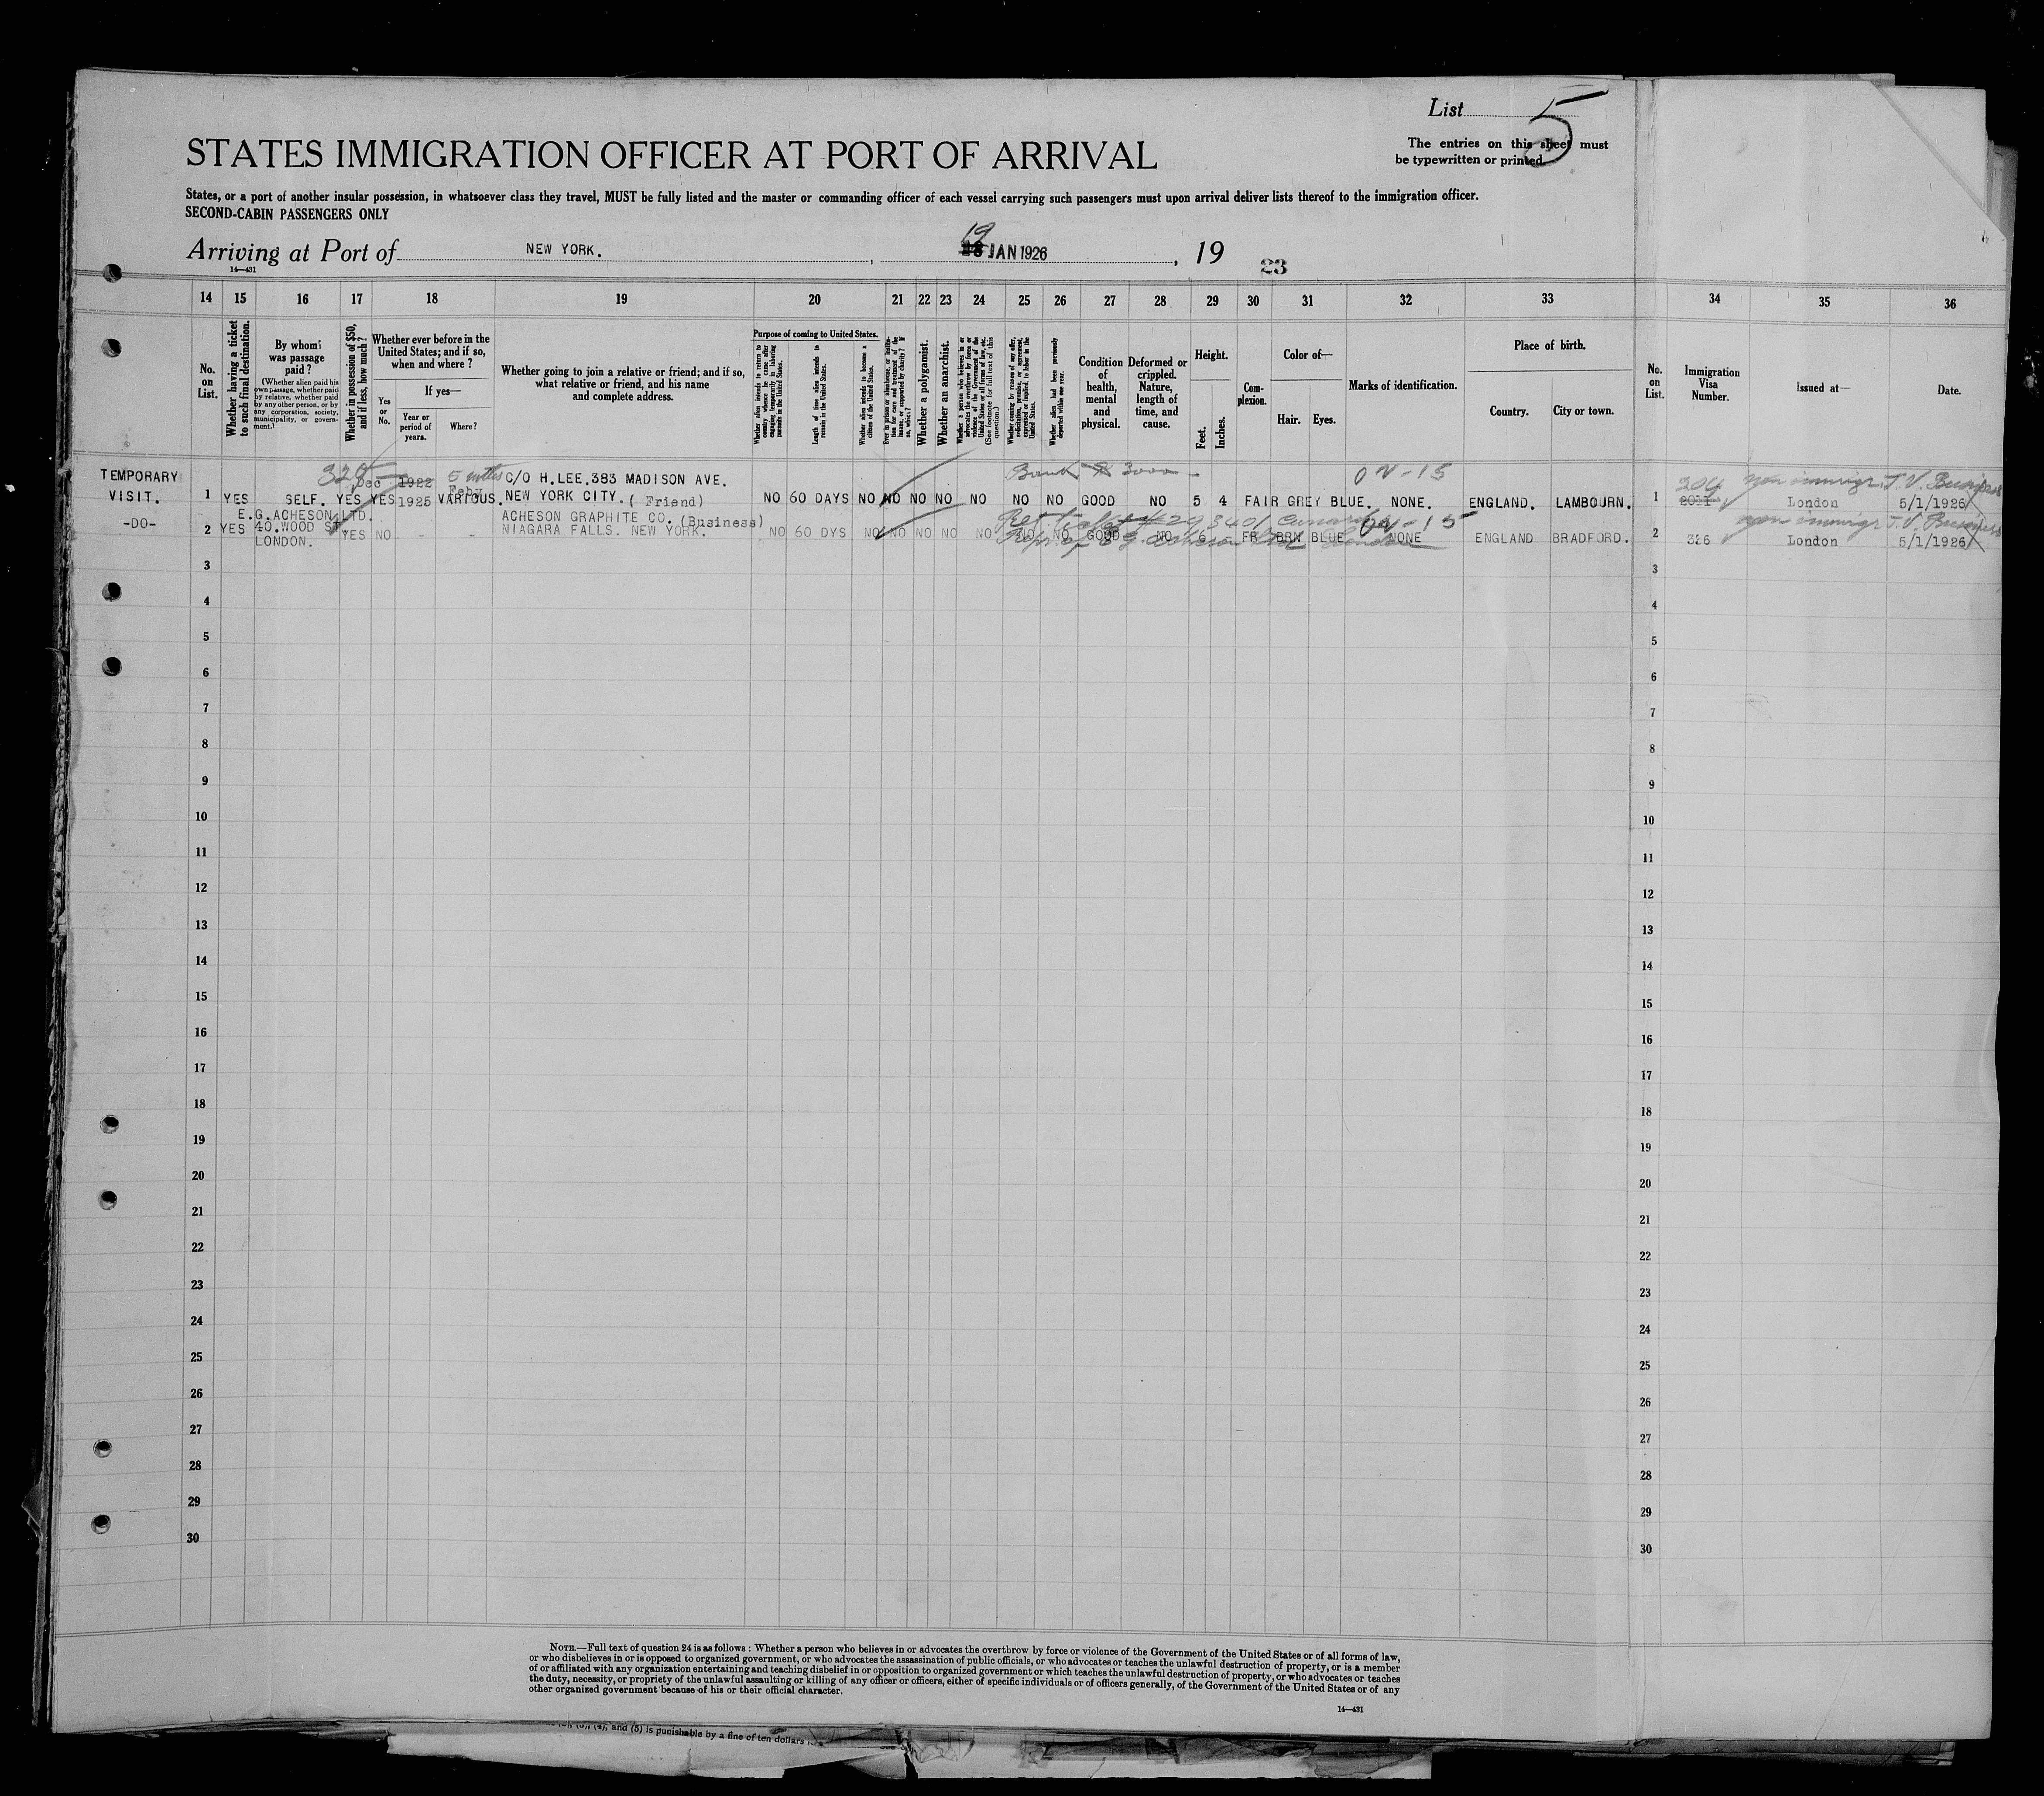 List 5
5
The entries on this sheet must
be typewritten or printed.
STATES IMMIGRATION OFFICER AT PORT OF ARRIVAL
States, or a port of another insular possession, in whatsoever class they travel, MUST be fully listed and the master or commanding officer of each vessel carrying such passengers must upon arrival deliver lists thereof to the immigration officer.
SECOND-CABIN PASSENGERS ONLY
19
Arriving at Port of NEW YORK. , JAN 1926 , 19
14—431
23
14 15 16 17 18 19 20 21 22 23 24 25 26 27 28 29 30 31 32 33 34 35 36
No. on List.
Whether having a ticket to such final destination.
By whom was passage paid?
(Whether alien paid his own passage, whether paid by relative, whether paid by any other person, or by any corporation, society, municipality, or government.)
Whether in possession of $50, and if less, how much?
Whether ever before in the United States; and if so, when and where?
Yes or No.
If yes—
Year or period of years.
Where?
Whether going to join a relative or friend; and if so, what relative or friend, and his name and complete address.
Purpose of coming to United States.
Whether alien intends to return to country whence he came after engaging temporarily in laboring pursuits in the United States.
Length of time alien intends to remain in the United States.
Whether alien intends to become a citizen of the United States.
Ever in prison or almshouse, or institution for care and treatment of the insane, or supported by charity? If so, which?
Whether a polygamist.
Whether an anarchist.
Whether a person who believes in or advocates the overthrow by force or violence of the Government of the United States or all forms of law, etc. (See footnote for full text of this question.)
Whether coming by reason of any offer, solicitation, promise, or agreement, expressed or implied, to labor in the United States.
Whether alien had been previously deported within one year.
Condition of health, mental and physical.
Deformed or crippled. Nature, length of time, and cause.
Height.
Feet.
Inches.
Complexion.
Color of—
Hair.
Eyes.
Marks of identification.
Place of birth.
Country.
City or town.
No. on List.
Immigration Visa Number.
Issued at—
Date.
TEMPORARY
VISIT.
325 Dec 1922 5 mths C/O H.LEE.383 MADISON AVE. Bank $ 3000 — 204 non immigr. T.V. Business
1 YES SELF. YES YES 1925 Feby VARIOUS. NEW YORK CITY. ( Friend) NO 60 DAYS NO NO NO NO NO NO NO GOOD NO 5 4 FAIR GREY BLUE. NONE. ENGLAND. LAMBOURN. 1 London 5/1/1926
-DO-
E.G.ACHESON LTD. ACHESON GRAPHITE CO. (Business) non immigr T.V. Business
2 YES 40.WOOD ST YES NO - - NIAGARA FALLS. NEW YORK. NO 60 DYS NO NO NO NO NO NO NO GOOD NO 6 - FR BRN BLUE NONE ENGLAND BRADFORD. 2 326 London 5/1/1926
LONDON.
3 3
4 4
5 5
6 6
7 7
8 8
9 9
10 10
11 11
12 12
13 13
14 14
15 15
16 16
17 17
18 18
19 19
20 20
21 21
22 22
23 23
24 24
25 25
26 26
27 27
28 28
29 29
30 30
NOTE.—Full text of question 24 is as follows: Whether a person who believes in or advocates the overthrow by force or violence of the Government of the United States or of all forms of law,
or who disbelieves in or is opposed to organized government, or who advocates the assassination of public officials, or who advocates or teaches the unlawful destruction of property, or is a member
of or affiliated with any organization entertaining and teaching disbelief in or opposition to organized government or which teaches the unlawful destruction of property, or who advocates or teaches
the duty, necessity, or propriety of the unlawful assaulting or killing of any officer or officers, either of specific individuals or of officers generally, of the Government of the United States or of any
other organized government because of his or their official character.
14—431
(4), and (5) is punishable by a fine of ten dollars